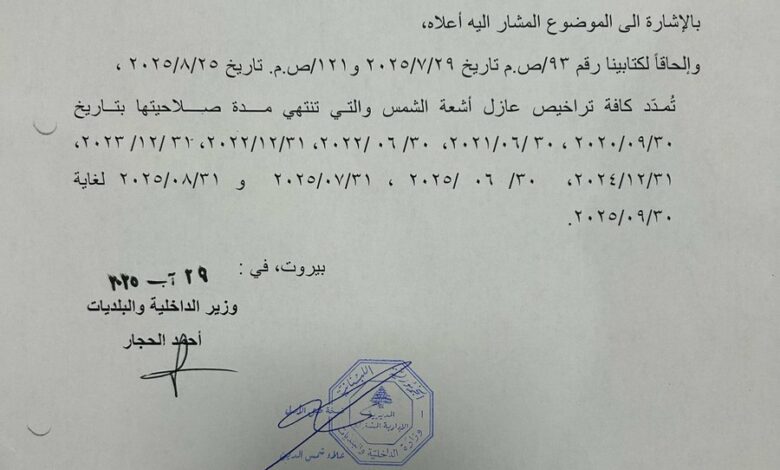 بالإشارة الى الموضوع المشار اليه أعلاه،
وإلحاقاً لكتابينا رقم ٩٣/ص.م تاريخ ٢٠٢٥/٧/٢٩ و١٢١/ص.م. تاريخ ٢٠٢٥/٨/٢٥ ،
تُمدّد كافة تراخيص عازل أشعة الشمس والتي تنتهي مدة صلاحيتها بتاريخ
٢٠٢٠/٠٩/٣٠ ، ٣٠/ ٢٠٢١/٠٦، ٣٠/ ٠٦ /٢٠٢٢، ٢٠٢٢/١٢/٣١، ٣١/ ١٢/ ٢٠٢٣،
٢٠٢٤/١٢/٣١، ٣٠/ ٠٦ /٢٠٢٥ ، ٢٠٢٥/٠٧/٣١ و ٢٠٢٥/٠٨/٣١ لغاية
٢٠٢٥/٠٩/٣٠.
بيروت، في :
٢٩ آب ٢٠٢٥
وزير الداخلية والبلديات
أحمد الحجار
الجمهورية اللبنانية
الإدارية
وزارة الداخلية والبلديات
علاء شمس الدين